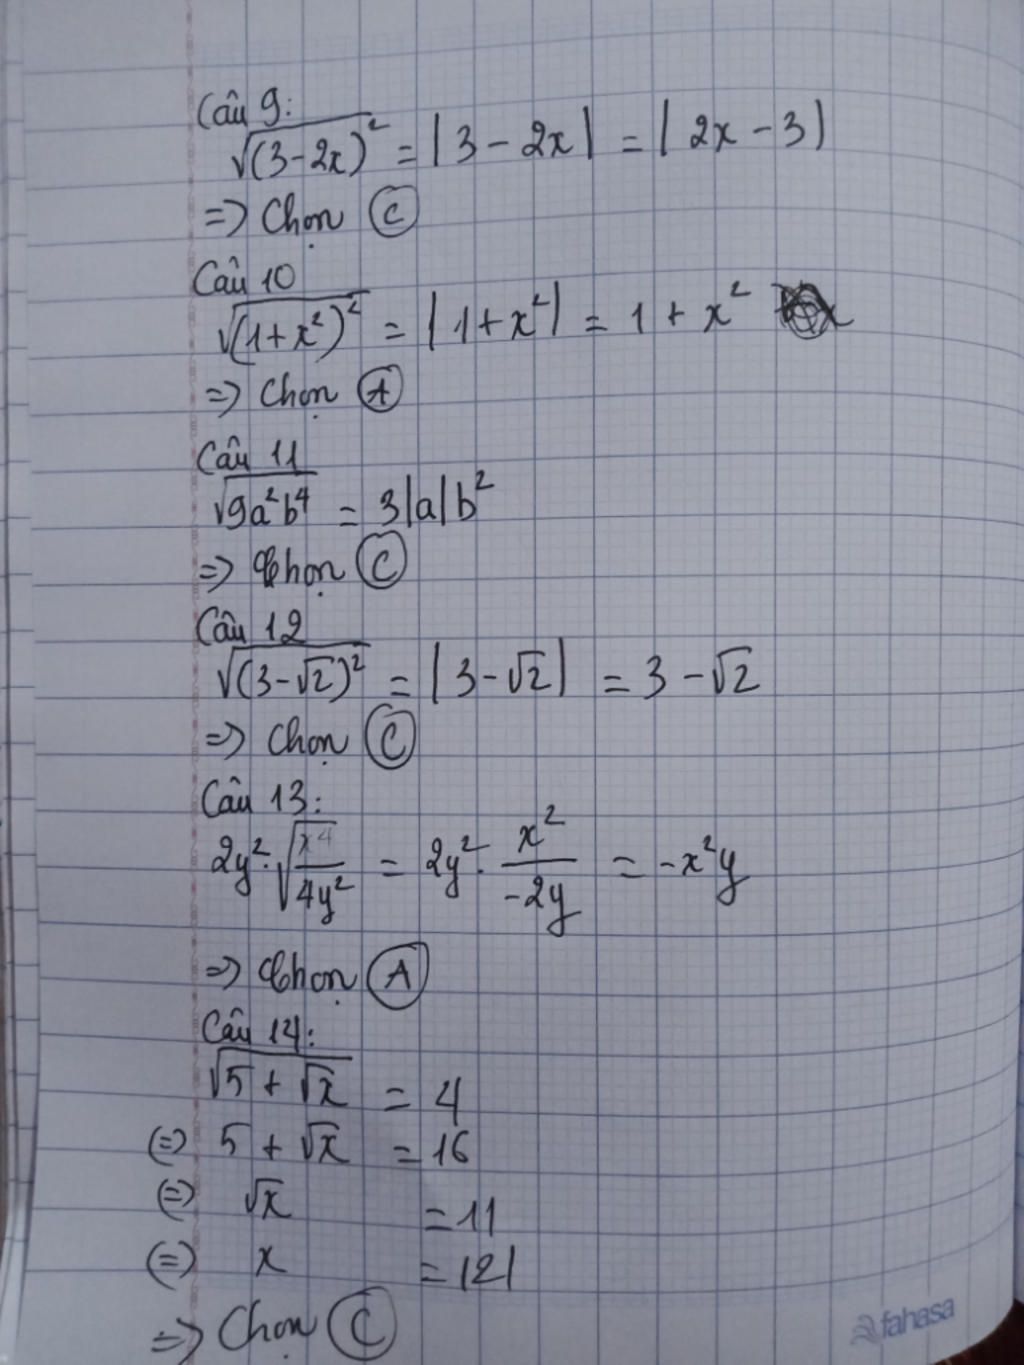 Câu 9:
√(3-2x)² = |3 - 2x| = |2x - 3|
=> Chọn C
Câu 10
√(1+x²)² = |1+x²| = 1 + x²
=> Chọn A
Câu 11
√9a²b⁴ = 3|a|b²
=> Chọn C
Câu 12
√(3-√2)² = |3-√2| = 3 - √2
=> Chọn C
Câu 13:
2y².√x⁴/4y² = 2y².x²/-2y = -x²y
=> Chọn A
Câu 14:
√5 + √x = 4
(=) 5 + √x = 16
(=) √x = 11
(=) x = 121
=> Chọn C
fahasa